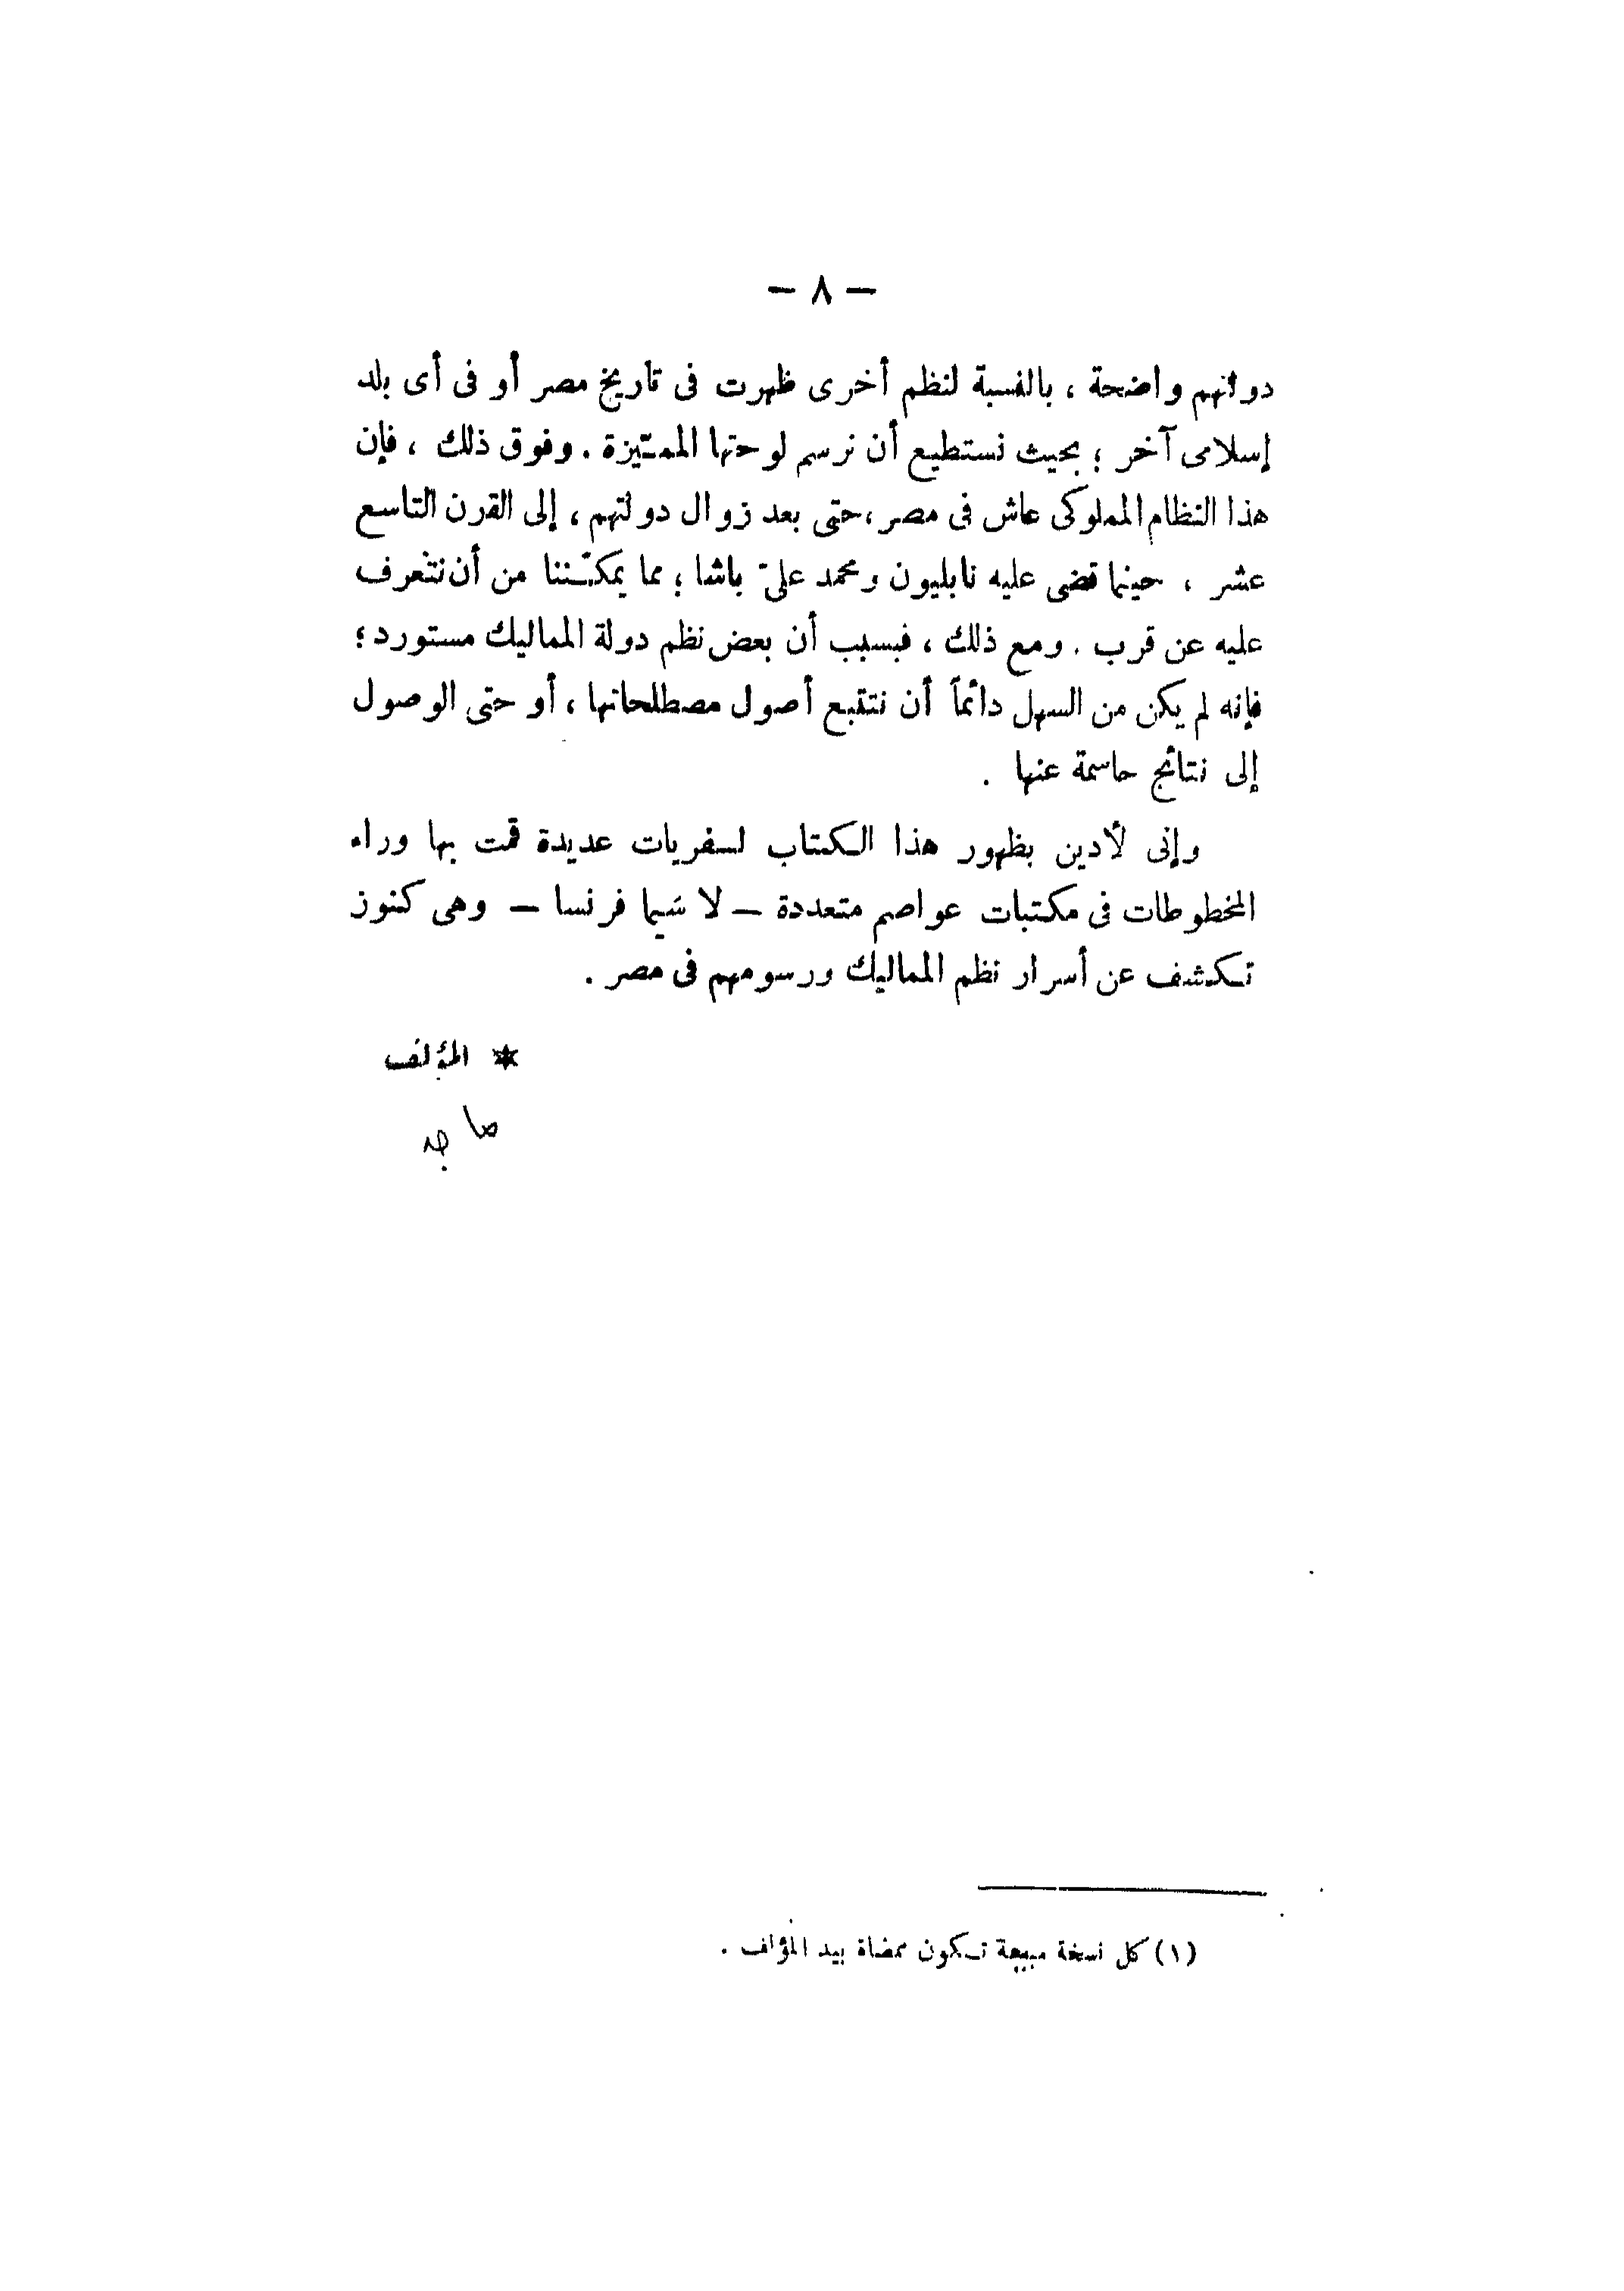 — ٨ —
دولتهم واضحة ، بالنسبة لنظم أخرى ظهرت فى تاريخ مصر أو فى أى بلد
إسلامى آخر ؛ بحيث نستطيع أن نرسم لوحتها المميّزة . وفوق ذلك ، فإن
هذا النظام المملوكى عاش فى مصر ، حتى بعد زوال دولتهم ، إلى القرن التاسع
عشر ، حينما قضى عليه نابليون ومحمد علىّ باشا ؛ مما يمكّننا من أن نتعرف
عليه عن قرب . ومع ذلك ، فبسبب أن بعض نظم دولة المماليك مستورد ؛
فإنه لم يكن من السهل دائماً أن نتتبع أصول مصطلحاتها ، أو حتى الوصول
إلى نتائج حاسمة عنها .
وإنى لأدين بظهور هذا الكتاب لسفريات عديدة قمت بها وراء
المخطوطات فى مكتبات عواصم متعددة — لا سَيما فرنسا — وهى كنوز
تكشف عن أسرار نظم المماليك ورسومهم فى مصر .
* المؤلف
ماجد
(١) كل نسخة مبيعة تكون ممضاة بيد المؤلف .